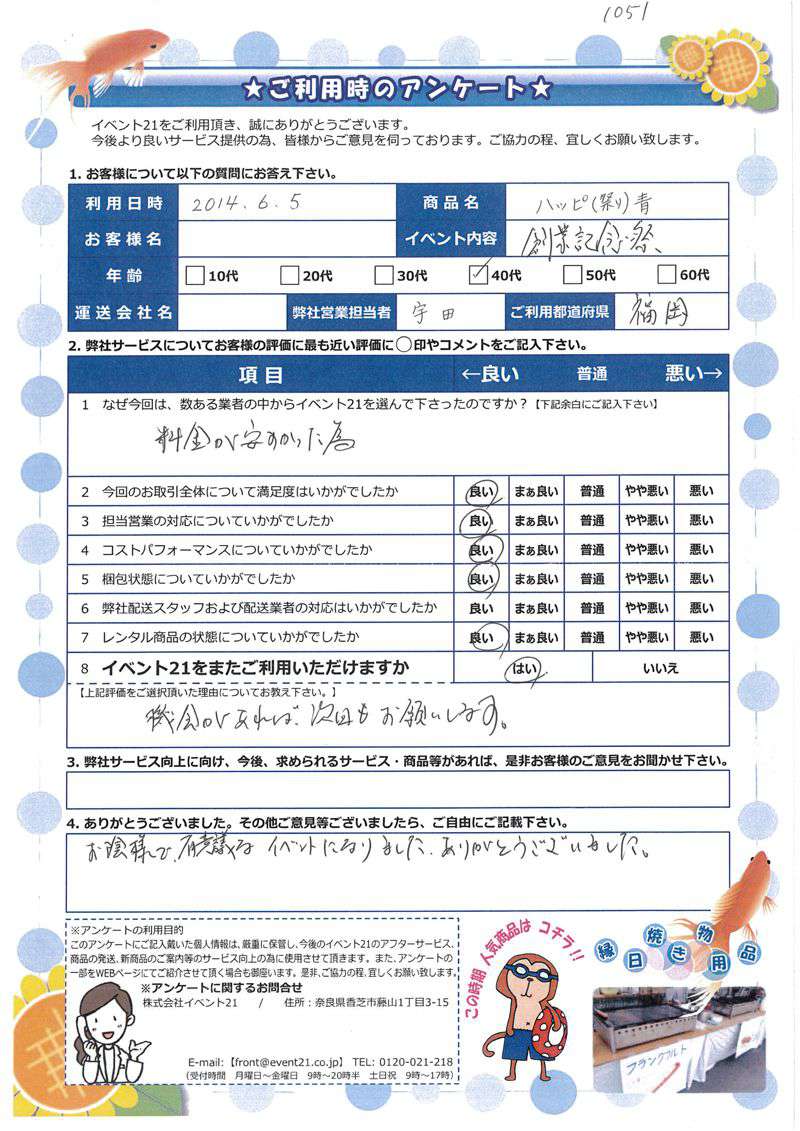 1051
★ご利用時のアンケート★
イベント21をご利用頂き、誠にありがとうございます。
今後より良いサービス提供の為、皆様からご意見を伺っております。ご協力の程、宜しくお願い致します。
1. お客様について以下の質問にお答え下さい。
利用日時 2014.6.5 商品名 ハッピ(祭り)青
お客様名 イベント内容 創業記念祭、
年齢 10代 20代 30代 ✓40代 50代 60代
運送会社名 弊社営業担当者 宇田 ご利用都道府県 福岡
2. 弊社サービスについてお客様の評価に最も近い評価に○印やコメントをご記入下さい。
項目 ←良い 普通 悪い→
1 なぜ今回は、数ある業者の中からイベント21を選んで下さったのですか？【下記余白にご記入下さい】
料金が安すかった為
2 今回のお取引全体について満足度はいかがでしたか 良い まぁ良い 普通 やや悪い 悪い
3 担当営業の対応についていかがでしたか 良い まぁ良い 普通 やや悪い 悪い
4 コストパフォーマンスについていかがでしたか 良い まぁ良い 普通 やや悪い 悪い
5 梱包状態についていかがでしたか 良い まぁ良い 普通 やや悪い 悪い
6 弊社配送スタッフおよび配送業者の対応はいかがでしたか 良い まぁ良い 普通 やや悪い 悪い
7 レンタル商品の状態についていかがでしたか 良い まぁ良い 普通 やや悪い 悪い
8 イベント21をまたご利用いただけますか はい いいえ
【上記評価をご選択頂いた理由についてお教え下さい。】
機会があれば、次回もお願いします。
3. 弊社サービス向上に向け、今後、求められるサービス・商品等があれば、是非お客様のご意見をお聞かせ下さい。
4. ありがとうございました。その他ご意見等ございましたら、ご自由にご記載下さい。
お陰様で、有意義なイベントになりました、ありがとうございました。
※アンケートの利用目的
このアンケートにご記入戴いた個人情報は、厳重に保管し、今後のイベント21のアフターサービス、
商品の発送、新商品のご案内等のサービス向上の為に使用させて頂きます。また、アンケートの
一部をWEBページにてご紹介させて頂く場合も御座います。是非、ご協力の程、宜しくお願い致します。
※アンケートに関するお問合せ
株式会社イベント21 / 住所：奈良県香芝市藤山1丁目3-15
E-mail:【front@event21.co.jp】 TEL: 0120-021-218
(受付時間 月曜日〜金曜日 9時〜20時半 土日祝 9時〜17時)
この時期 人気商品は コチラ!!
縁日焼き物用品
フランクフルト